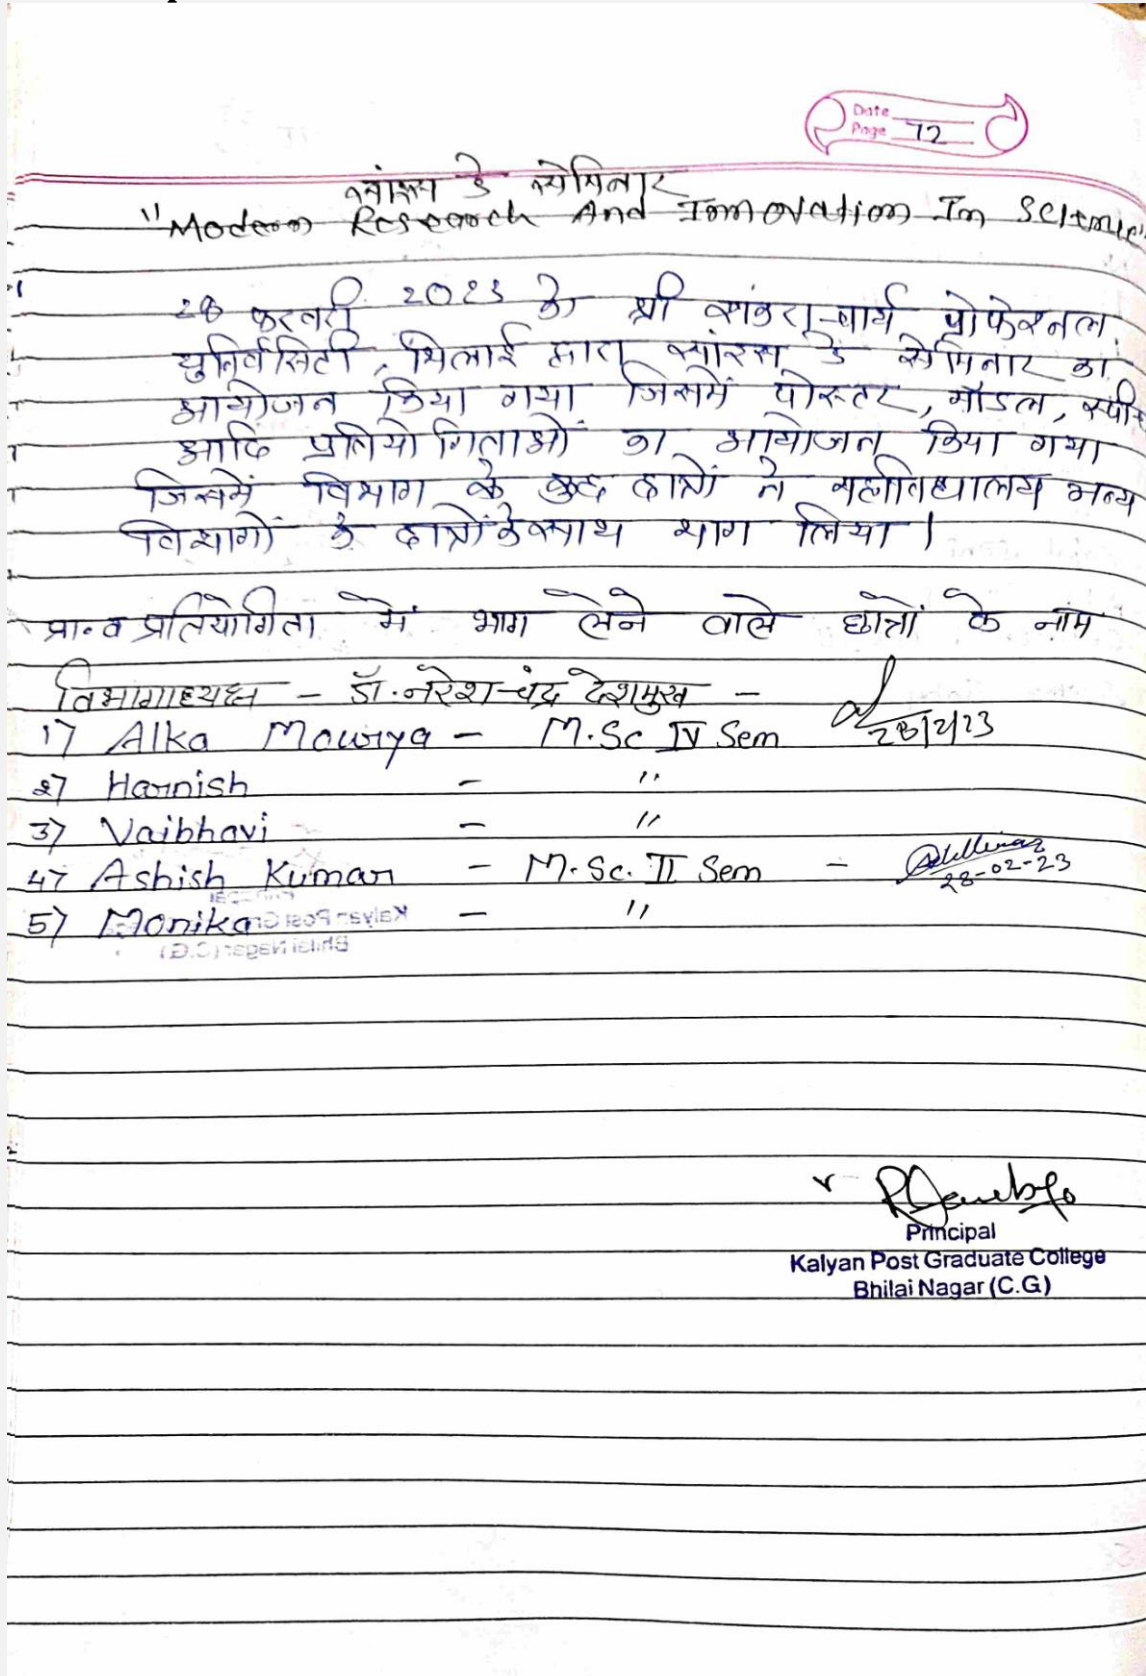 Date
Page 72
साइंस डे सेमिनार
"Modern Research And Innovation In Science"
28 फरवरी 2023 को श्री शंकराचार्य प्रोफेशनल
युनिर्वसिटी, भिलाई द्वारा साइंस डे सेमिनार का
आयोजन किया गया जिसमें पोस्टर, मॉडल, स्पीच
आदि प्रतियोगिताओं का आयोजन किया गया
जिसमें विभाग के कुछ छात्रों ने महाविद्यालय अन्य
विभागों के छात्रों के साथ भाग लिया।
प्रा॰व प्रतियोगिता में भाग लेने वाले छात्रों के नाम
विभागाध्यक्ष - डॉ. नरेश चंद्र देशमुख - 28/2/23
1) Alka Mourya - M.Sc IV Sem
2) Harnish - "
3) Vaibhavi - "
4) Ashish Kumar - M.Sc. II Sem - 28-02-23
5) Monika - "
Principal
Kalyan Post Graduate College
Bhilai Nagar (C.G)